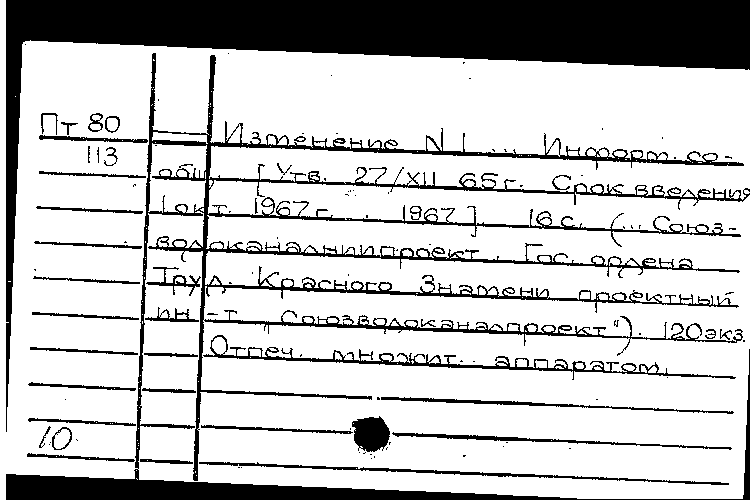 Пт 80 Изменение N 1 ... Информ. со-
113 общ. [Утв. 27/XII 65 г. Срок введения
1 окт. 1967 г. . 1967]. 16 с. (... Союз-
водоканалниипроект. Гос. ордена
Труд. Красного Знамени проектный
ин-т "Союзводоканалпроект"). 120 экз.
Отпеч. множит. аппаратом.
10